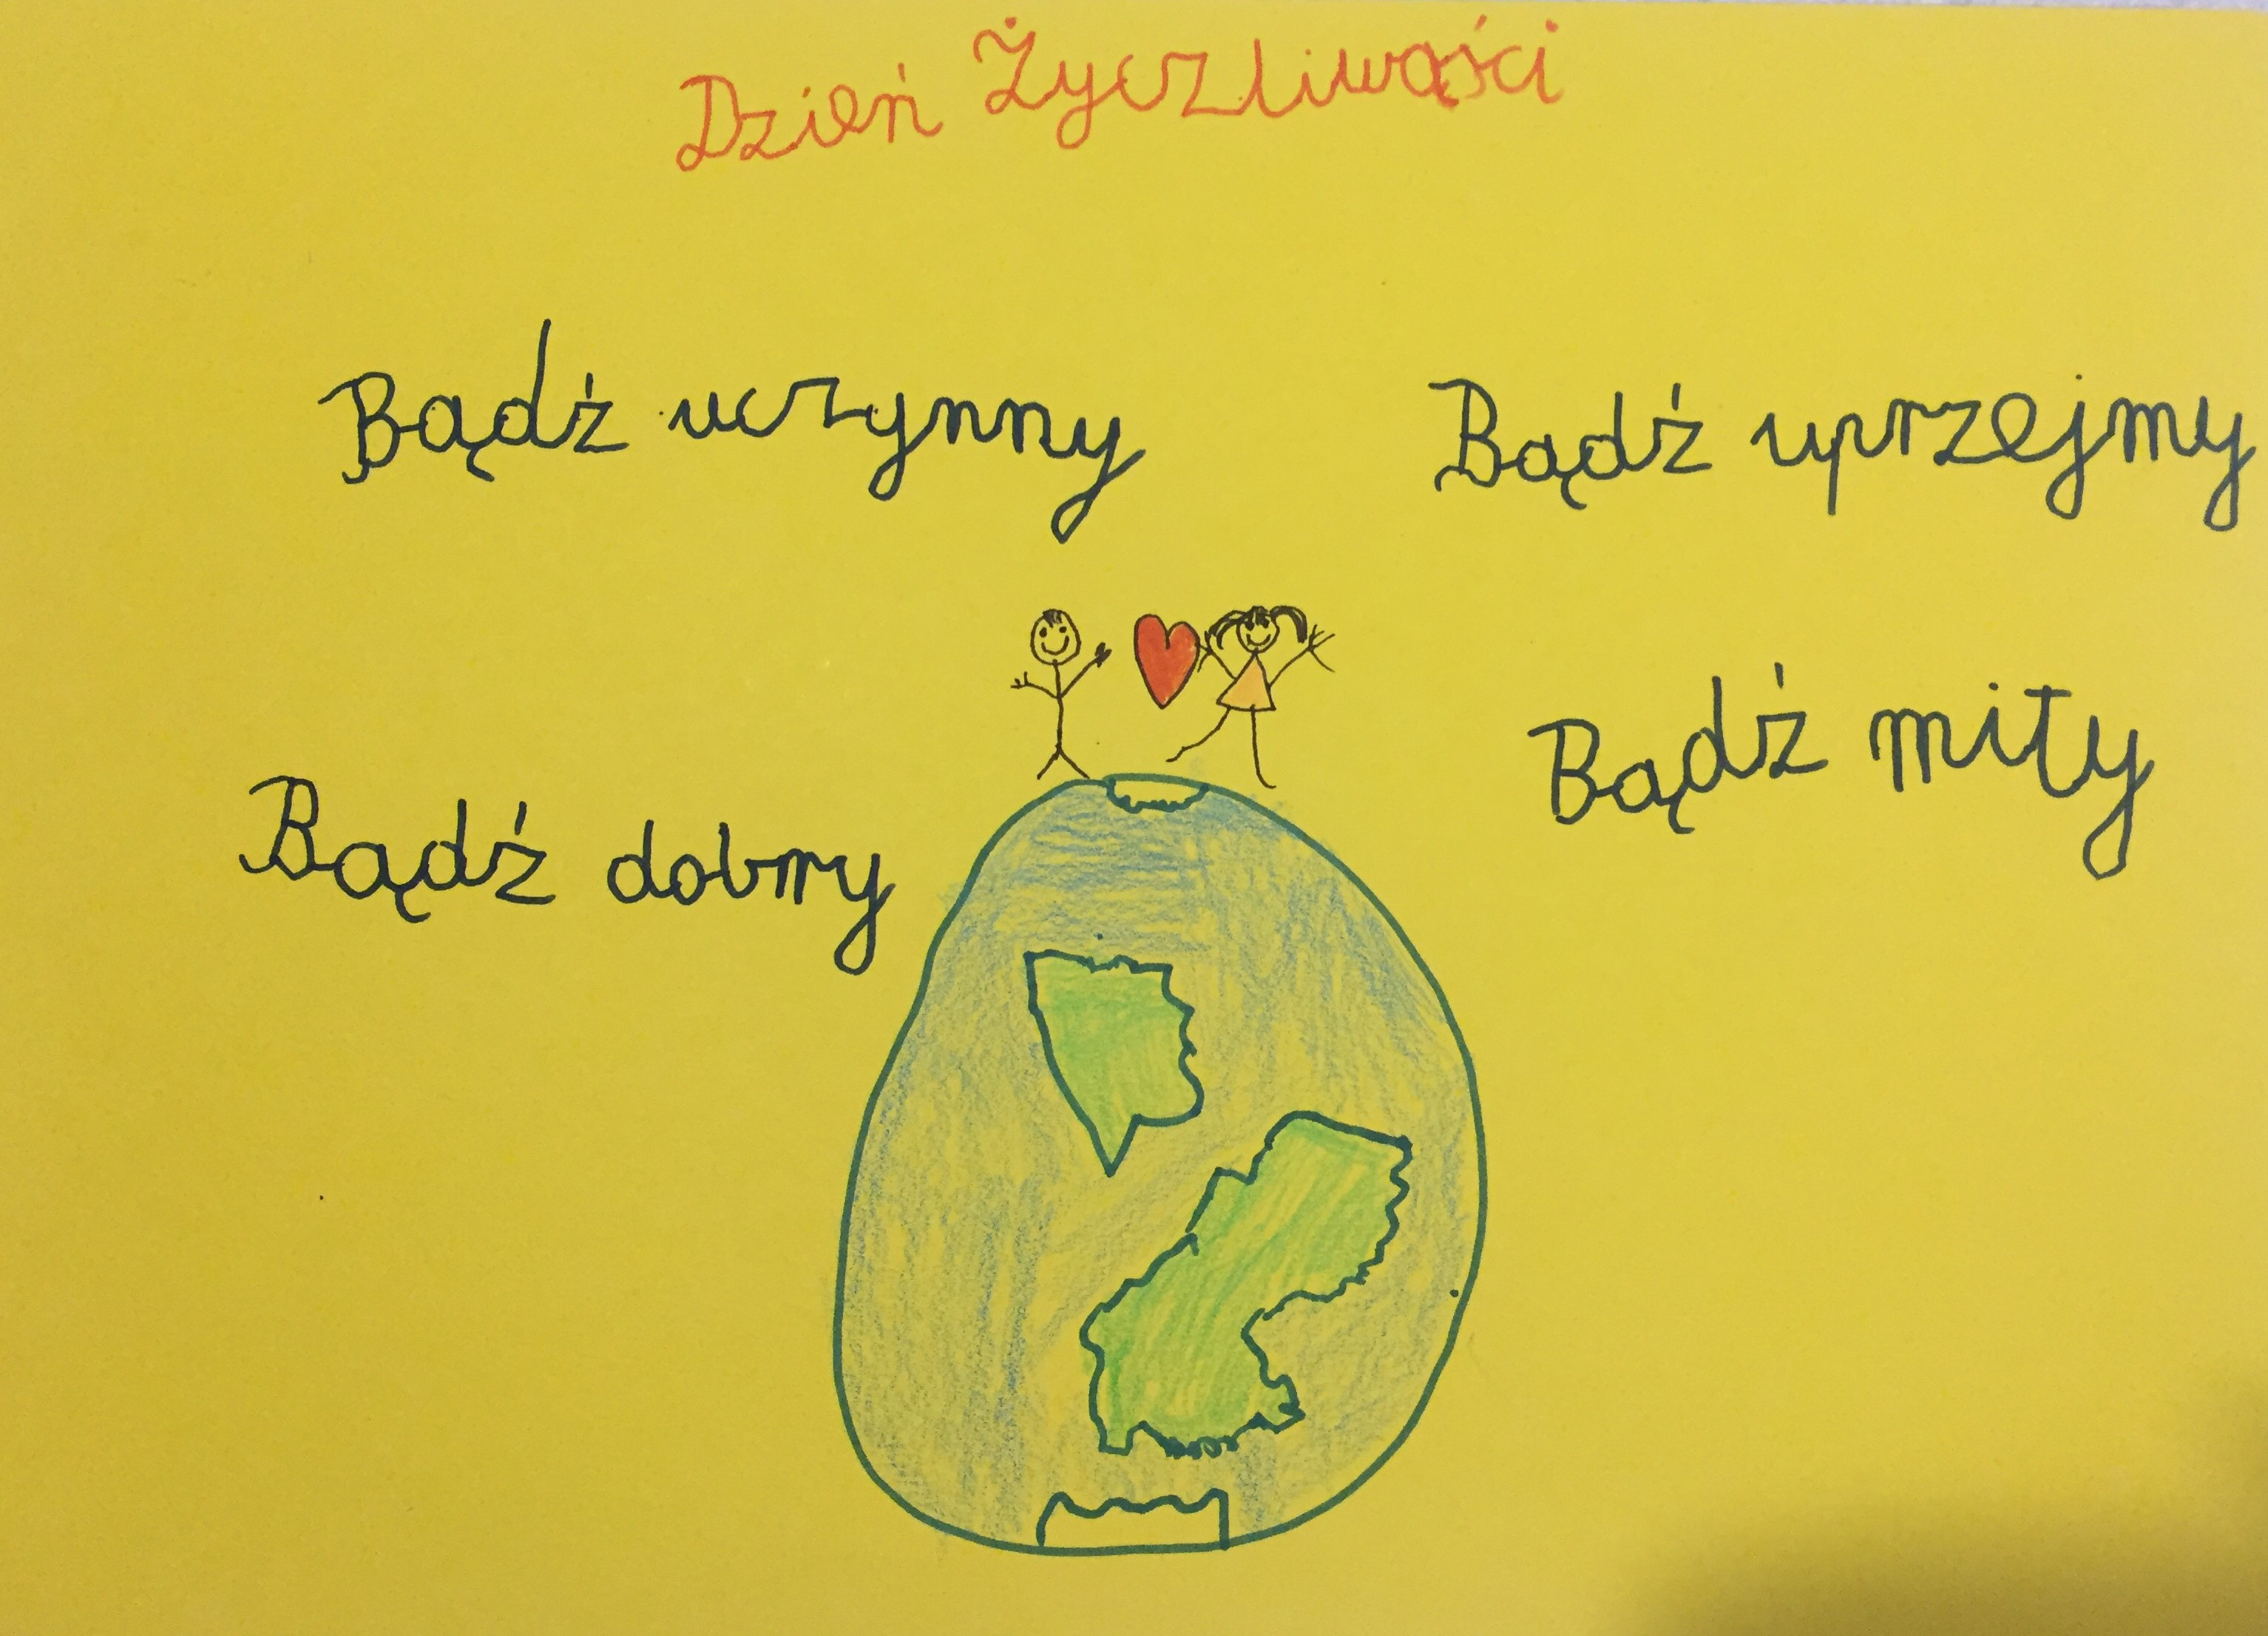 Dzień Życzliwości
Bądź uczynny
Bądź uprzejmy
Bądź dobry
Bądź miły